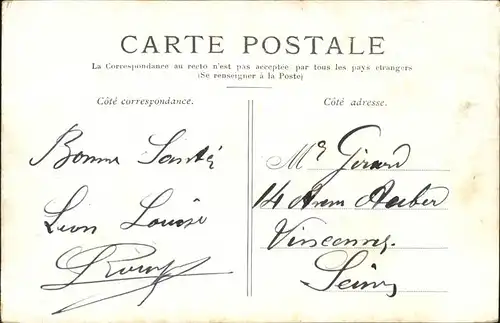 CARTE POSTALE
La Correspondance au recto n'est pas acceptée par tous les pays étrangers
(Se renseigner à la Poste)
Côté correspondance.
Côté adresse.
Bonne Santé
Léon Louise
Mr Girard
14 Aubert
Vincennes
Seine